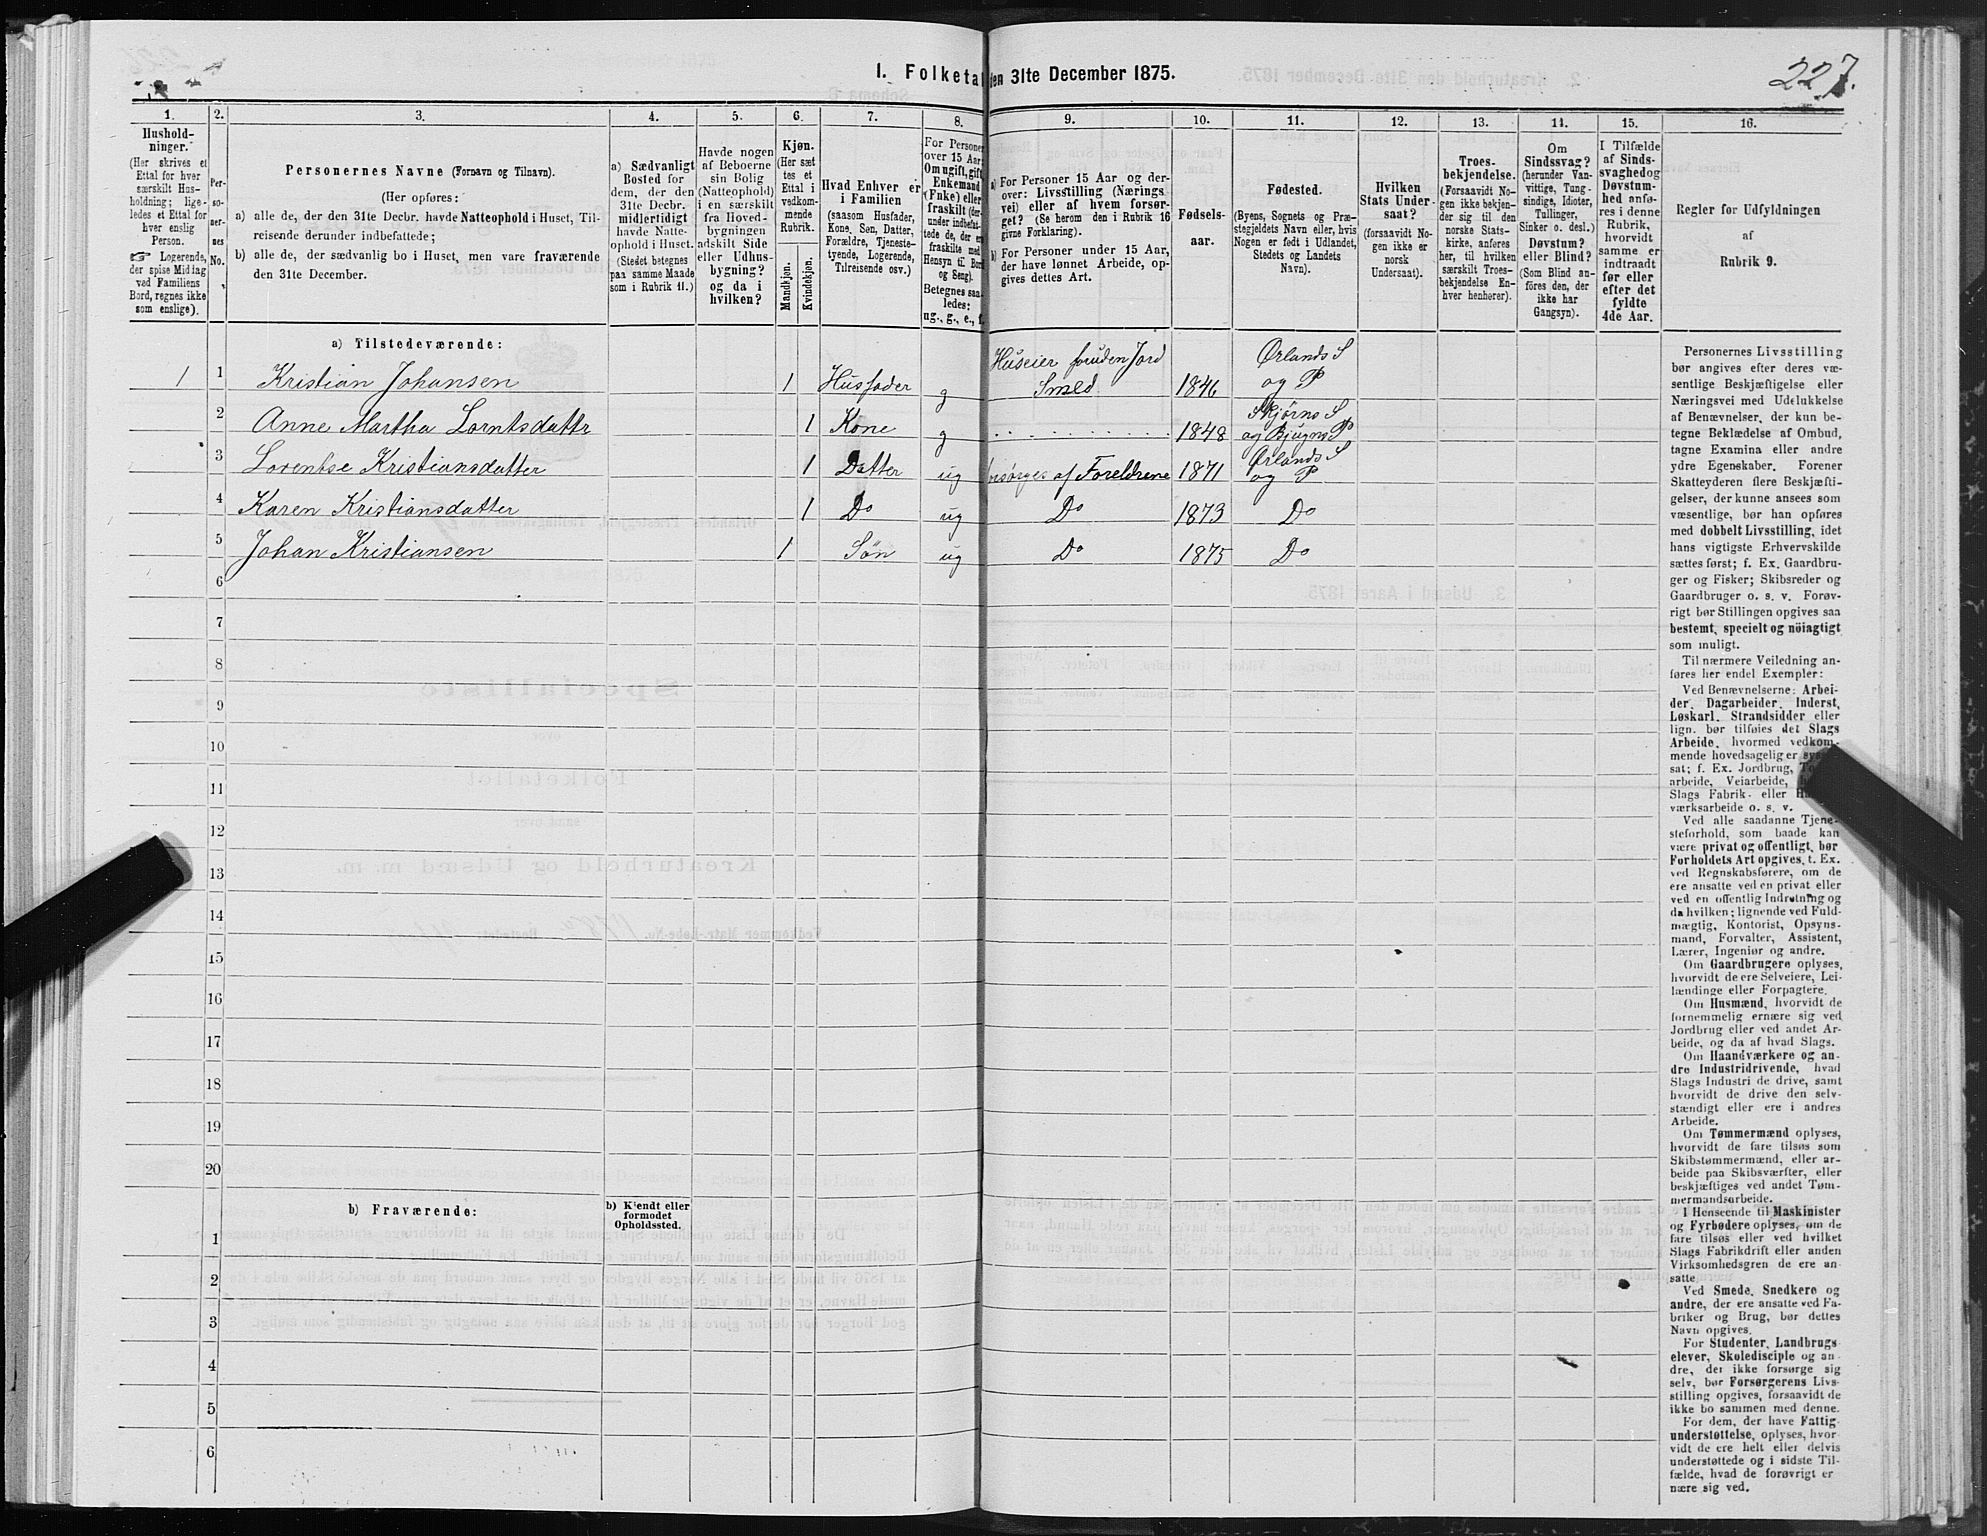 1. Folketal den 31te December 1875.
227.
1.
2.
3.
4.
5.
6.
7.
8.
9.
10.
11.
12.
13.
14.
15.
16.
Hushold-
ninger.
(Her skrives et
Ettal for hver
særskilt Hus-
holdning; lige-
ledes et Ettal for
hver enslig
Person.
☞ Logerende,
der spise Middag
ved Familiens
Bord, regnes ikke
som enslige).
Per-
so-
ner-
nes
No.
Personernes Navne (Fornavn og Tilnavn).
(Her opføres:
a) alle de, der den 31te Decbr. havde Natteophold i Huset, Til-
reisende derunder indbefattede;
b) alle de, der sædvanlig bo i Huset, men vare fraværende
den 31te December.
a) Sædvanligt
Bosted for
dem, der den
31te Decbr.
midlertidigt
havde Natte-
ophold i Huset.
(Stedet betegnes
paa samme Maade
som i Rubrik 11.)
Havde nogen
af Beboerne
sin Bolig
(Natteophold)
i en særskilt
fra Hoved-
bygningen
adskilt Side
eller Udhus-
bygning?
og da i
hvilken?
Kjøn.
(Her sæt
tes et
Ettal i
vedkom-
mende
Rubrik.
Mandkjøn.
Kvindekjøn.
Hvad Enhver er
i Familien
(saasom Husfader,
Kone, Søn, Datter,
Forældre, Tjeneste-
tyende, Logerende,
Tilreisende osv.)
For Personer
over 15 Aar:
Om ugift, gift,
Enkemand
(Enke) eller
fraskilt (der-
under indbefat-
tede de, der ere
fraskilte med
Hensyn til Bord
og Seng).
Betegnes saa-
ledes:
ug., g., e., f.
a) For Personer 15 Aar og der-
over: Livsstilling (Nærings
vei) eller af hvem forsør-
get? (Se herom den i Rubrik 16
givne Forklaring).
b) For Personer under 15 Aar,
der have lønnet Arbeide, op-
gives dettes Art.
Fødsels-
aar.
Fødested.
(Byens, Sognets og Præ-
stegjeldets Navn eller, hvis
Nogen er født i Udlandet,
Stedets og Landets
Navn).
Hvilken
Stats Under-
saat?
(forsaavidt No-
gen ikke er
norsk
Undersaat).
Troes-
bekjendelse.
(Forsaavidt No-
gen ikke bekjen-
der sig til den
norske Stats-
kirke, anføres
her, til hvilken
særskilt Troes-
bekjendelse En-
hver henhører).
Om
Sindssvag?
(herunder Van-
vittige, Tung-
sindige, Idioter,
Tullinger,
Sinker o. desl.)
Døvstum?
eller Blind?
(Som Blind an-
føres den, der
ikke har
Gangsyn).
I Tilfælde
af Sinds-
svaghed og
Døvstum-
hed anfø-
res i denne
Rubrik,
hvorvidt
samme er
indtraadt
før eller
efter det
fyldte
4de Aar.
Regler for Udfyldningen
af
Rubrik 9.
a) Tilstedeværende:
1 1 Kristian Johansen 1 Husfader g Huseier foruden Jord Smed 1846 Ørlands S og P
2 Anne Martha Lorntsdatter 1 Kone g 1848 Skjørns S og Bjugns P
3 Lorentse Kristiansdatter 1 Datter ug forsørges af Foreldrene 1871 Ørlands S og P
4 Karen Kristiansdatter 1 Do ug Do 1873 Do
5 Johan Kristiansen 1 Søn ug Do 1875 Do
6
7
8
9
10
11
12
13
14
15
16
17
18
19
20
b) Fraværende:
b) Kjendt eller
formodet
Opholdssted.
1
2
3
4
5
6
Personernes Livsstilling
bør angives efter deres væ-
sentlige Beskjæftigelse eller
Næringsvei med Udelukkelse
af Benævnelser, der kun be-
tegne Beklædelse af Ombud,
tagne Examina eller andre
ydre Egenskaber. Forener
Skatteyderen flere Beskjæfti-
gelser, der kunne ansees som
væsentlige, bør han opføres
med dobbelt Livsstilling, idet
hans vigtigste Erhvervskilde
sættes først; f. Ex. Gaardbru-
ger og Fisker; Skibsreder og
Gaardbruger o. s. v. Forøv-
rigt bør Stillingen opgives saa
bestemt, specielt og nöiagtigt
som muligt.
Til nærmere Veiledning an-
føres her endel Exempler:
Ved Benævnelserne: Arbei-
der, Dagarbeider, Inderst,
Løskarl, Strandsidder eller
lign. bør tilføies det Slags
Arbeide, hvormed vedkom-
mende hovedsagelig er
sat; f. Ex. Jordbrug,
arbeide, Veiarbeide,
Slags Fabrik- eller
værksarbeide o. s. v.
Ved alle saadanne Tjene-
steforhold, som baade kan
være privat og offentligt, bør
Forholdets Art opgives, t. Ex.
ved Regnskabsførere, om de
ere ansatte ved en privat eller
ved en offentlig Indretning og
da hvilken; lignende ved Fuld-
mægtig, Kontorist, Opsyns-
mand, Forvalter, Assistent,
Lærer, Ingeniør og andre.
Om Gaardbrugere oplyses,
hvorvidt de ere Selveiere, Lei-
lændinge eller Forpagtere.
Om Husmænd, hvorvidt de
fornemmelig ernære sig ved
Jordbrug eller ved andet Ar-
beide, og da af hvad Slags.
Om Haandværkere og an-
dre Industridrivende, hvad
Slags Industri de drive, samt
hvorvidt de drive den selv-
stændigt eller ere i andres
Arbeide.
Om Tømmermænd oplyses,
hvorvidt de fare tilsøs som
Skibstømmermænd, eller ar-
beide paa Skibsværfter, eller
beskjæftiges ved andet Tøm-
mermandsarbeide.
I Henseende til Maskinister
og Fyrbødere oplyses, om de
fare tilsøs eller ved hvilket
Slags Fabrikdrift eller anden
Virksomhedsgren de ere an-
satte.
Ved Smede, Snedkere og
andre, der ere ansatte ved Fa-
briker og Brug, bør dettes
Navn opgives.
For Studenter, Landbrugs
elever, Skoledisciple og an-
dre, der ikke forsørge sig
selv, bør Forsørgerens Livs-
stilling opgives, forsaavidt de
ikke bo sammen med denne.
For dem, der have Fattig
understøttelse, oplyses, hvor-
vidt de ere helt eller delvis
understøttede og i sidste Til-
fælde, hvad de forøvrigt er
nære sig ved.